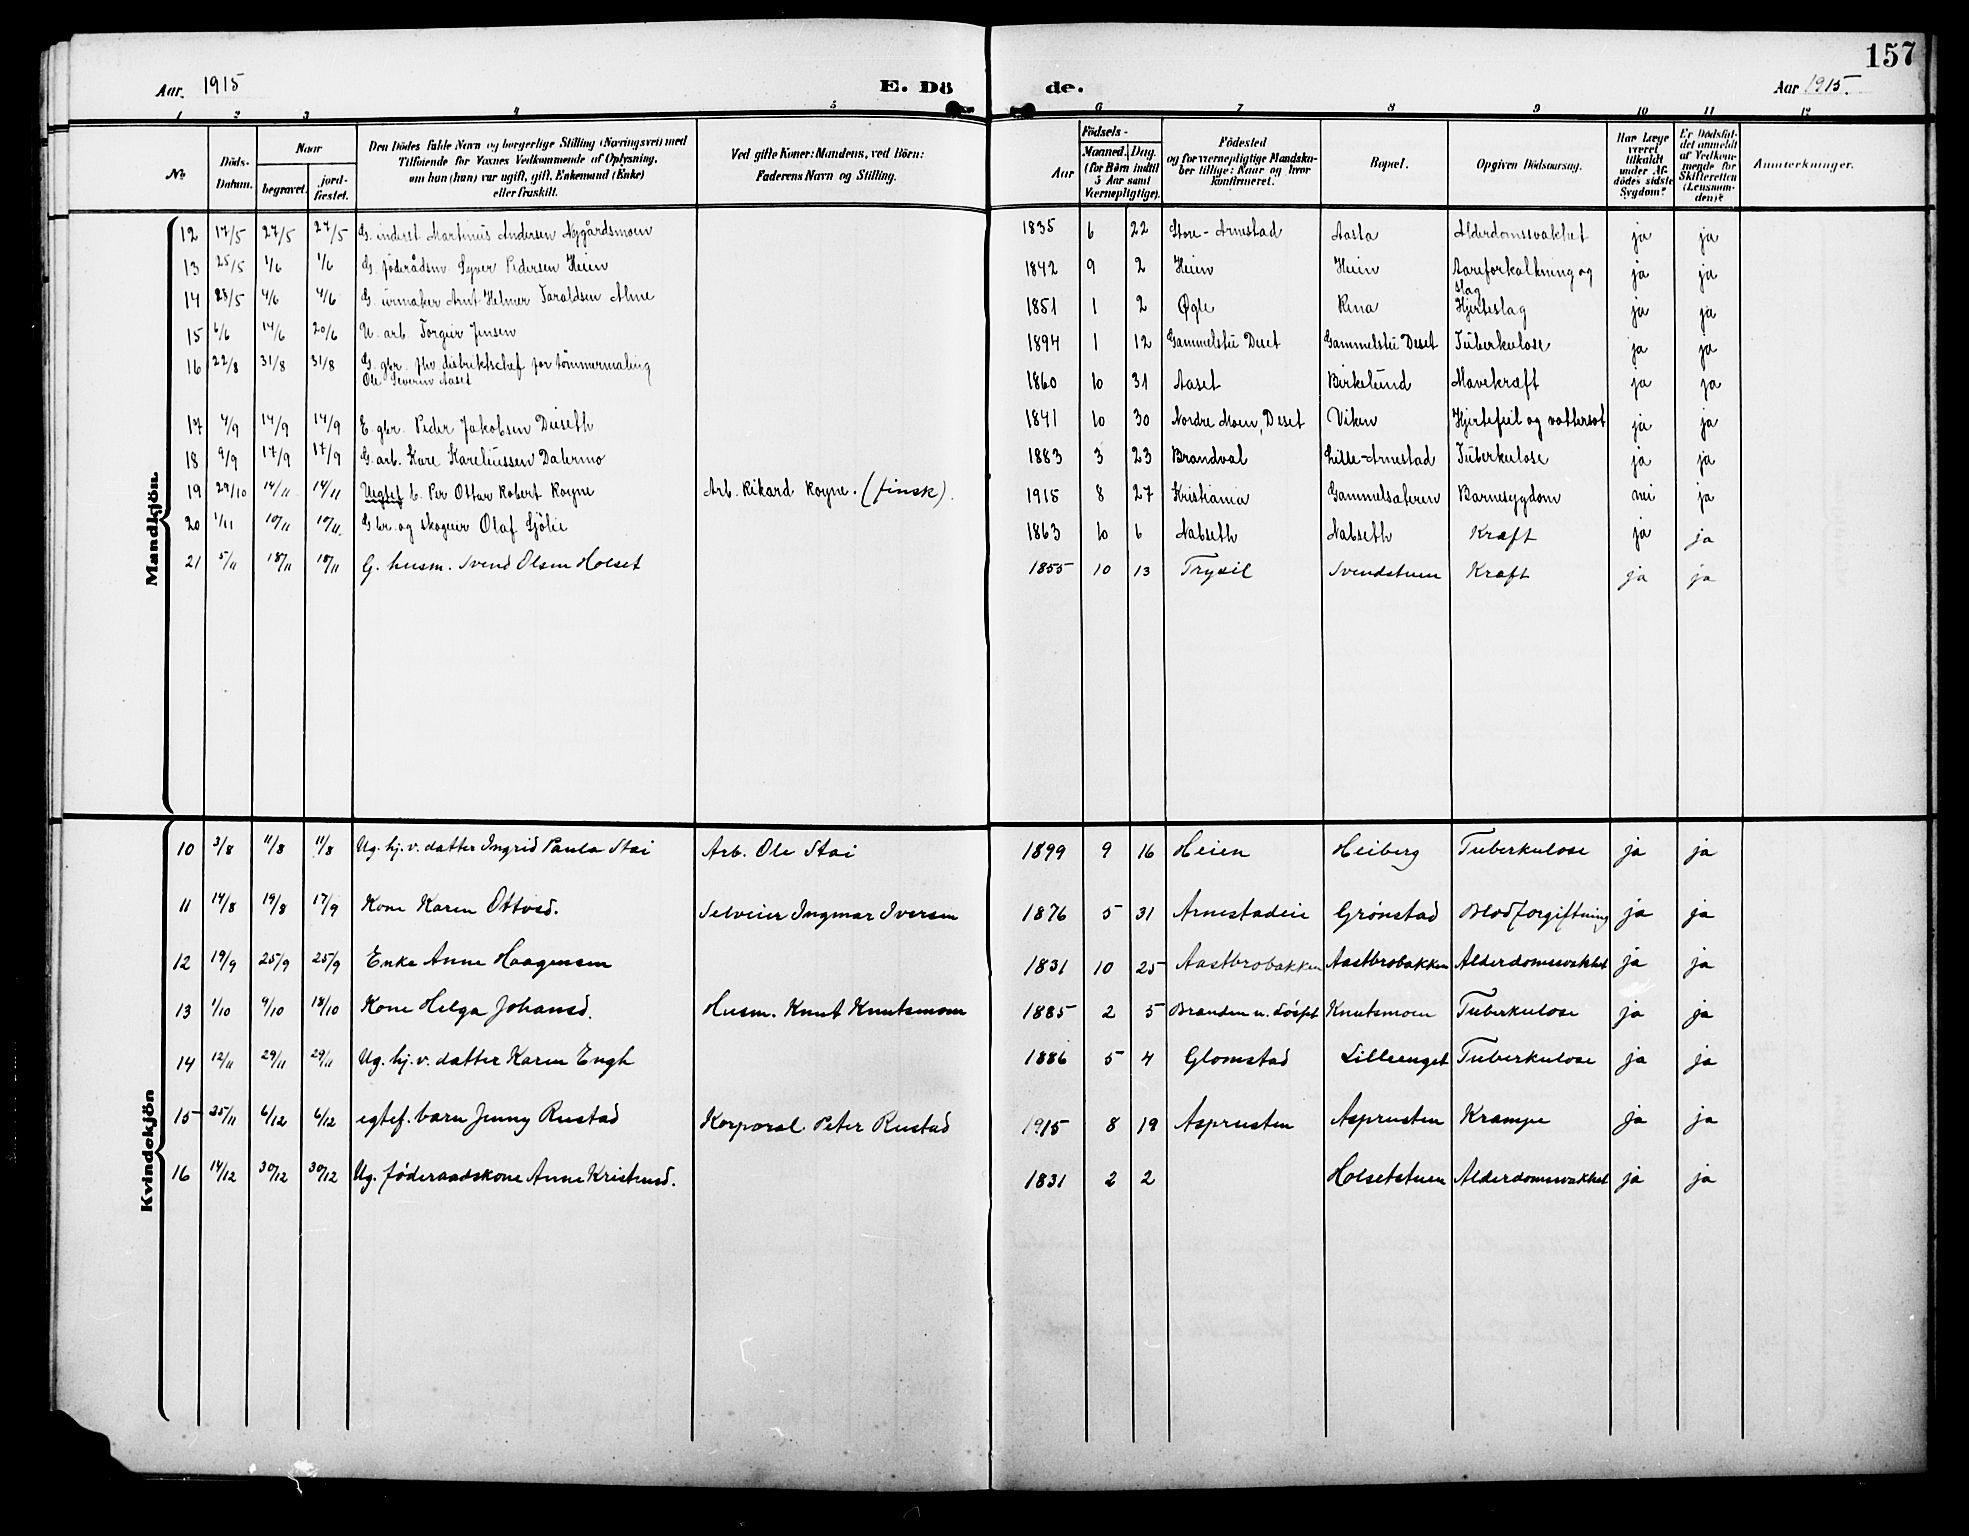 157
Aar. 1915
E. Dö
de.
Aar 1915.
1 2 3 4 5 6 7 8 9 10 11 12
No
Döds-Datum.
Naar
begravet.
jordfæstet.
Den Dödes fulde Navn og borgerlige Stilling (Næringsvei) med
Tilföiende for Voxnes Vedkommende af Oplysning,
om han (hun) var ugift, gift, Enkemand (Enke)
eller fraskilt.
Ved gifte Koner: Mandens, ved Börn:
Faderens Navn og Stilling.
Födsels-
Aar
Maaned. Dag.
(for Börn indtil
5 Aar samt
Værnepligtige).
Födested
og for værnepligtige Mandskaber tillige: Naar og hvor
konfirmeret.
Bopæl.
Opgiven Dödsaarsag.
Har Læge
været
tilkaldt
under Afdödes sidste
Sygdom?
Er Dödsfaldet anmeldt
af Vedkommende for
Skifteretten
(Lensmanden)?
Anmerkninger.
Mandkjön.
12 17/5 27/5 27/5 G. inderst Martinus Andersen Nygårdsmoen 1835 6 22 Store-Arnestad Aasta Alderdomssvakhet ja ja
13 25/5 1/6 1/6 G. föderådsm. Syver Pedersen Heien 1842 9 2 Heien Heien Aareforkalkning og slag ja ja
14 23/5 4/6 4/6 G. urmaker Arnt Helmer Taraldsen Alme 1851 1 2 Øgle Rena Hjerteslag ja ja
15 6/6 14/6 20/6 U. arb. Torgeir Jensen 1894 1 12 Gammelstu Deset Gammelstu Deset Tuberkulose ja ja
16 22/8 31/8 31/8 G. gbr. fhv. distriktschef for tömmermaling
Ole Severin Aaset 1860 10 31 Aaset Birkelund Mavekræft ja ja
17 4/9 14/9 14/9 E. gbr. Peder Jakobsen Dieseth 1841 10 30 Nordre Moen, Deset Viken Hjertefeil og vattersot ja ja
18 9/9 17/9 17/9 G. arb. Kare Kareliussen Dalermo 1883 3 23 Brandval Lille-Arnestad Tuberkulose ja ja
19 29/10 14/11 14/11 Uegtef b. Per Ottar Robert Royne Arb. Rikard Royne. (finsk). 1915 8 27 Kristiania Gammelsæteren Barnesygdom nei ja
20 1/11 10/11 10/11. G. br. og skogeier Olaf Sjölie 1863 10 6 Nabseth Nabseth Kræft ja ja
21 5/11 18/11 18/11 G. husm. Svend Olsen Holset 1855 10 13 Trysil Svendstuen Kræft ja ja
Kvindekjön
10 3/8 11/8 11/8 Ug. hj. v. datter Ingrid Paula Stai Arb. Ole Stai 1899 9 16 Heien Heiberg Tuberkulose ja ja
11 14/8 19/8 17/9 Kone Karen Ottosd. Selveier Ingmar Iversen 1876 5 31 Arnestadeie Grönstad Blodforgiftning ja ja
12 19/9 25/9 25/9 Enke Anne Haagensen 1831 10 25 Aastbrobakken Aastbrobakken Alderdomssvakhet ja ja
13 1/10 9/10 18/10 Kone Helga Johansd. Husm. Knut Knutsmoen 1885 2 5 Branden u. Löset Knutsmoen Tuberkulose ja ja
14 12/11 29/11 29/11 Ug. hj. v. datter Karen Engh 1886 5 4 Glomstad Lilleenget Tuberkulose ja ja
15 25/11 6/12 6/12 egtef. barn Jenny Rustad Korporal Peter Rustad 1915 8 19 Asprusten Asprusten Krampe ja ja
16 14/12 30/12 30/12 Ug. föderaadskone Anne Kristensd. 1831 2 2 Holsetstuen Alderdomssvakhet ja ja